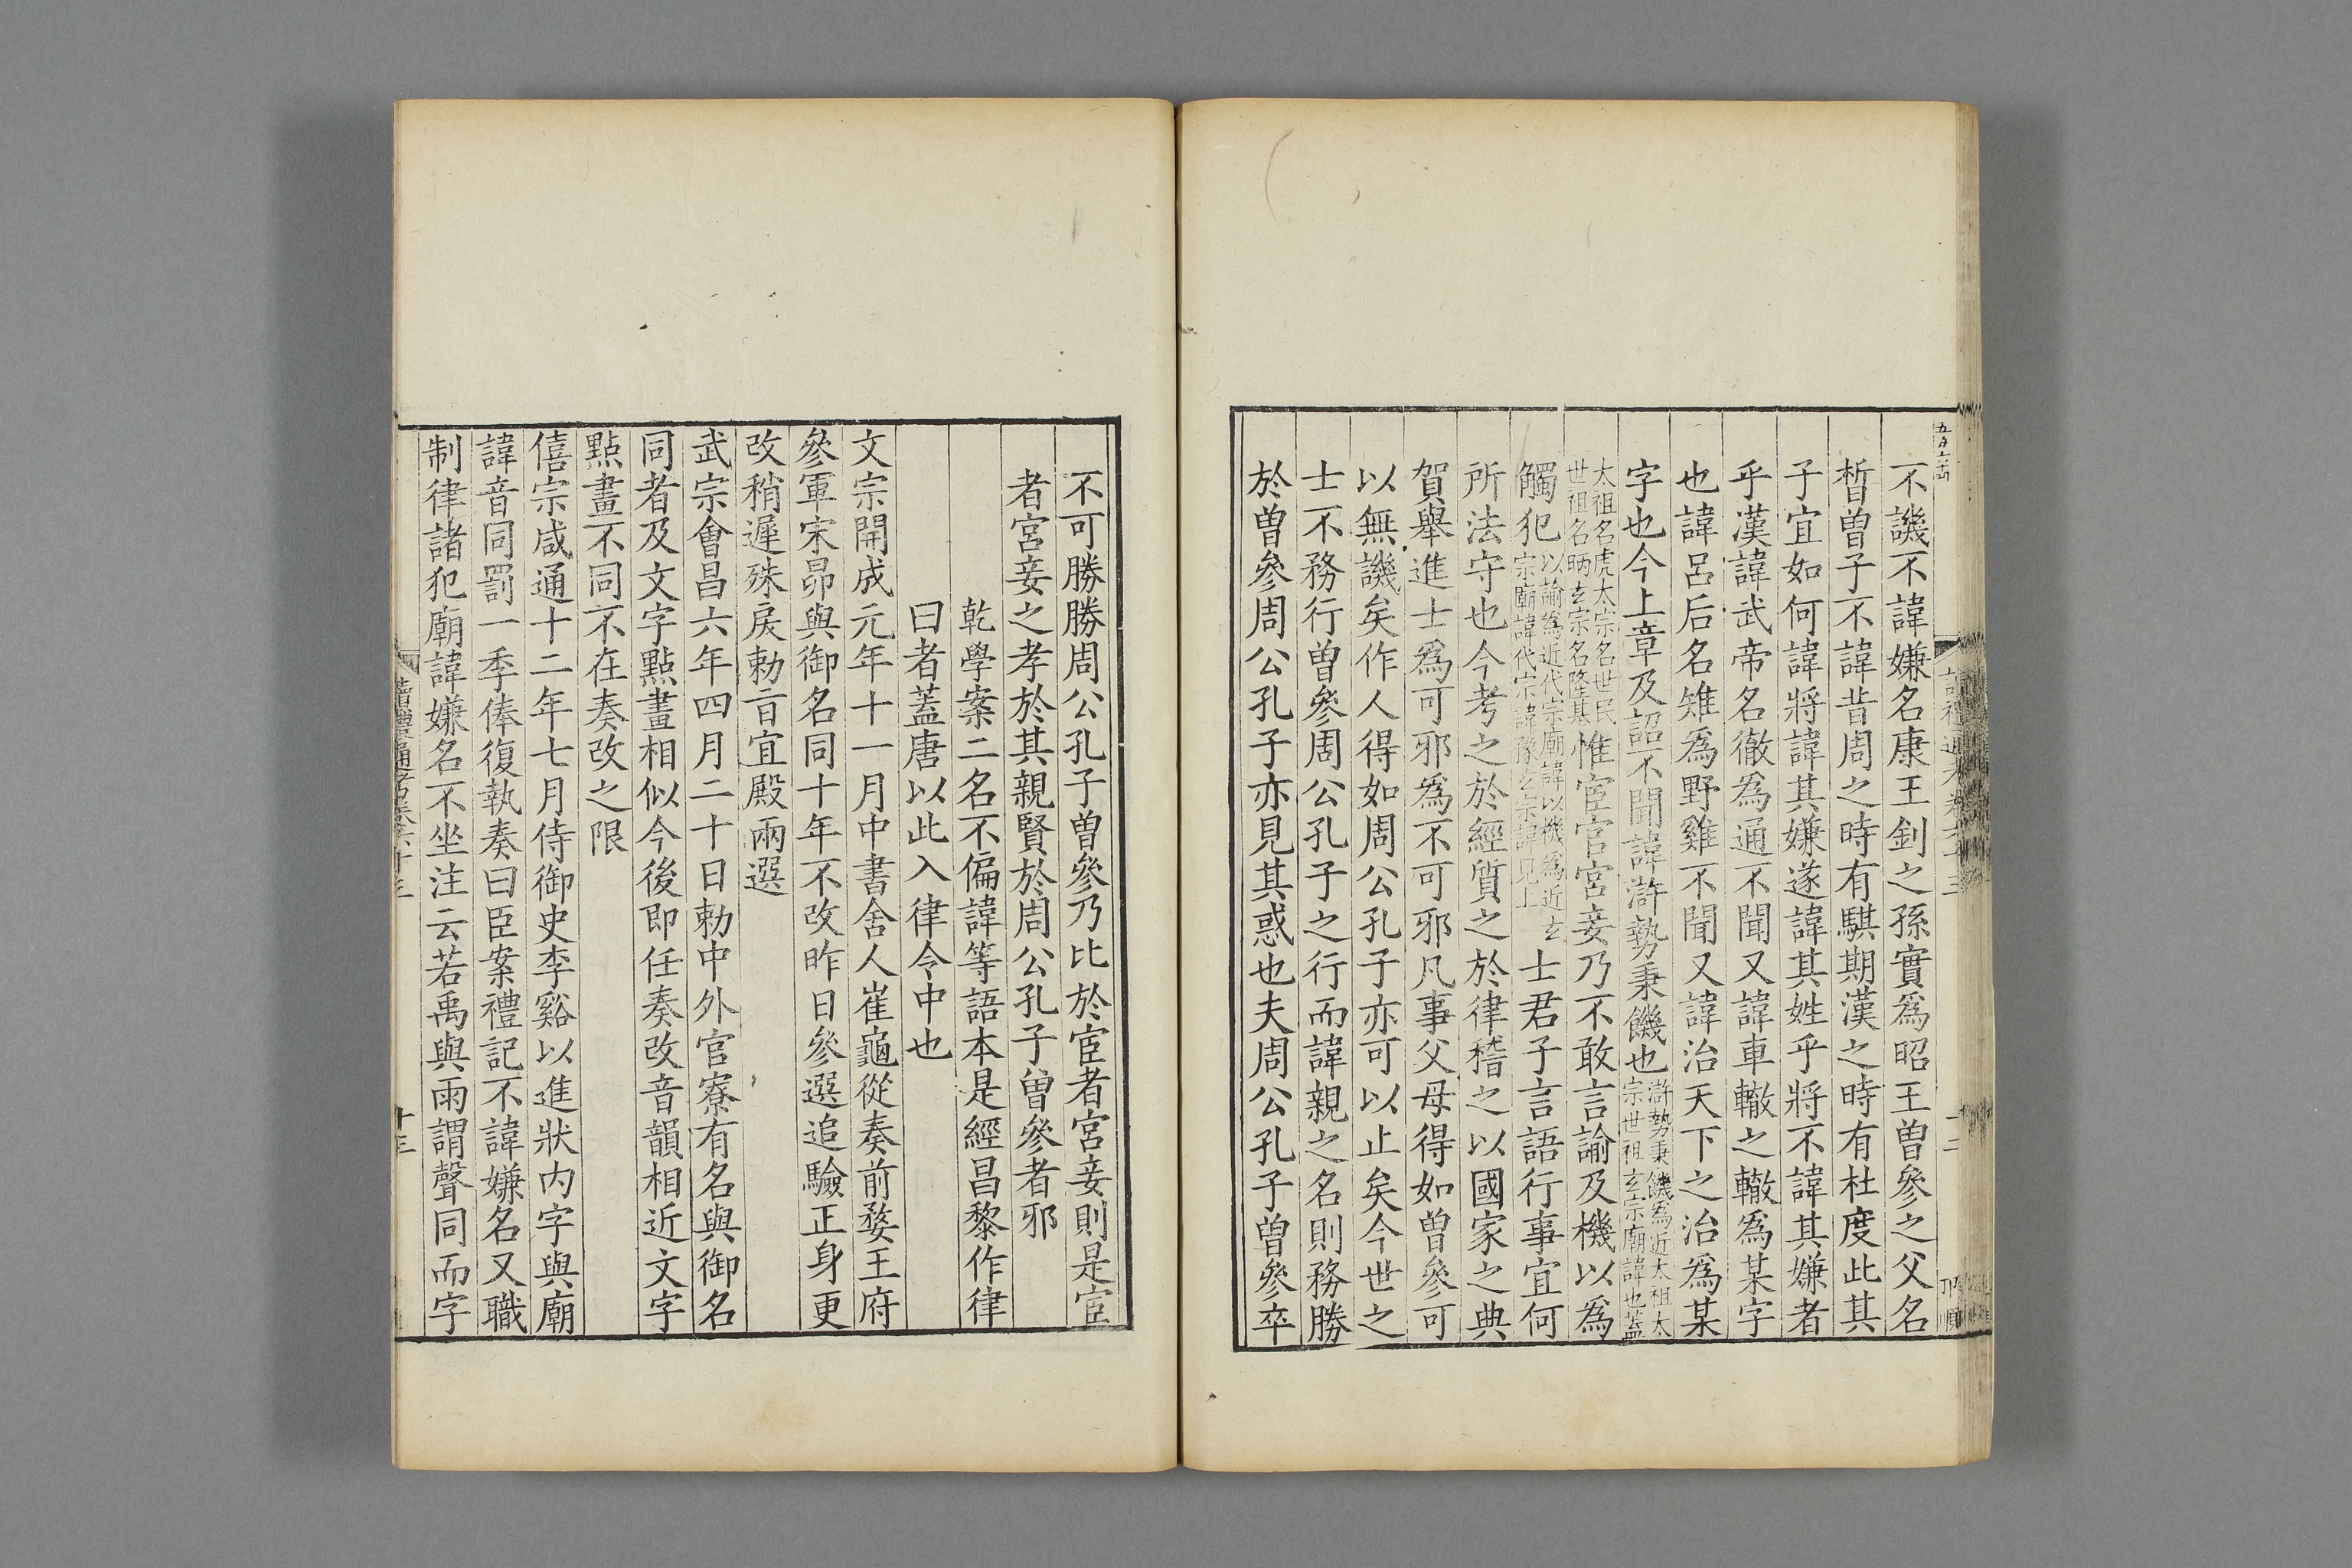 不譏不諱嫌名康王釗之孫實爲昭王曾參之父名
晳曾子不諱昔周之時有騏期漢之時有杜度此其
子宜如何諱將諱其嫌遂諱其姓乎將不諱其嫌者
乎漢諱武帝名徹爲通不聞又諱車轍之轍爲某字
也諱呂后名雉爲野雞不聞又諱治天下之治爲某
字也今上章及詔不聞諱滸勢秉饑也滸勢秉饑爲近太祖太宗世祖玄宗廟諱也蓋
太祖名虎太宗名世民世祖名昞玄宗名隆基惟宦官宮妾乃不敢言諭及機以爲
觸犯以諭爲近代宗廟諱以機爲近玄宗廟諱代宗諱豫玄宗諱見上士君子言語行事宜何
所法守也今考之於經質之於律稽之以國家之典
賀舉進士爲可邪爲不可邪凡事父母得如曾參可
以無譏矣作人得如周公孔子亦可以止矣今世之
士不務行曾參周公孔子之行而諱親之名則務勝
於曾參周公孔子亦見其惑也夫周公孔子曾參卒
不可勝勝周公孔子曾參乃比於宦者宮妾則是宦
者宮妾之孝於其親賢於周公孔子曾參者邪
乾學案二名不偏諱等語本是經昌黎作律
曰者蓋唐以此入律令中也
文宗開成元年十一月中書舍人崔龜從奏前婺王府
參軍宋昴與御名同十年不改昨日參選追驗正身更
改稍遲殊戾勅旨宜殿兩選
武宗會昌六年四月二十日勅中外官寮有名與御名
同者及文字點畫相似今後即任奏改音韻相近文字
點畫不同不在奏改之限
僖宗咸通十二年七月侍御史李谿以進狀內字與廟
諱音同罰一季俸復執奏曰臣案禮記不諱嫌名又職
制律諸犯廟諱嫌名不坐注云若禹與雨謂聲同而字
讀禮通考卷六十三
十三